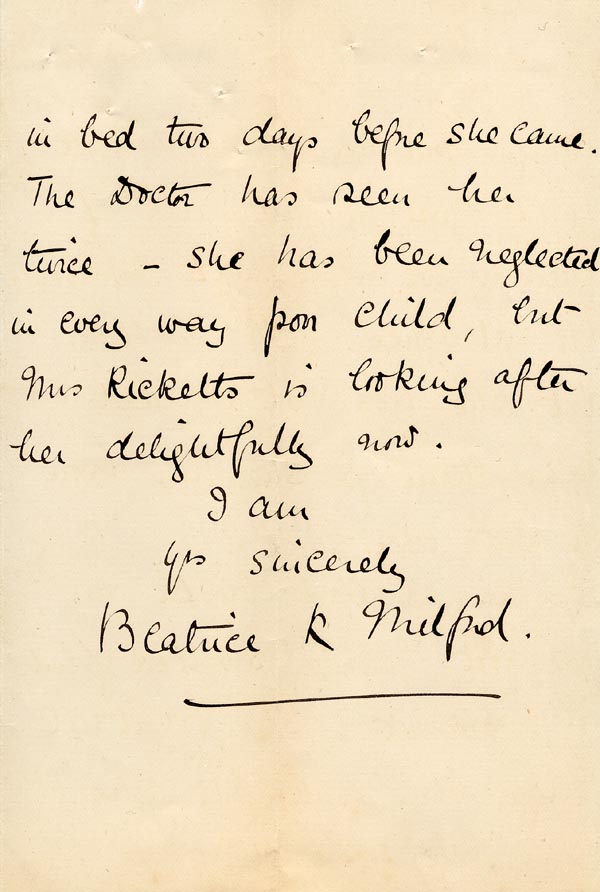 in bed two days before she came.
The Doctor has seen her
twice – she has been neglected
in every way poor child, but
Mrs Ricketts is looking after
her delightfully now.
I am
Yrs sincerely
Beatrice R Milford.